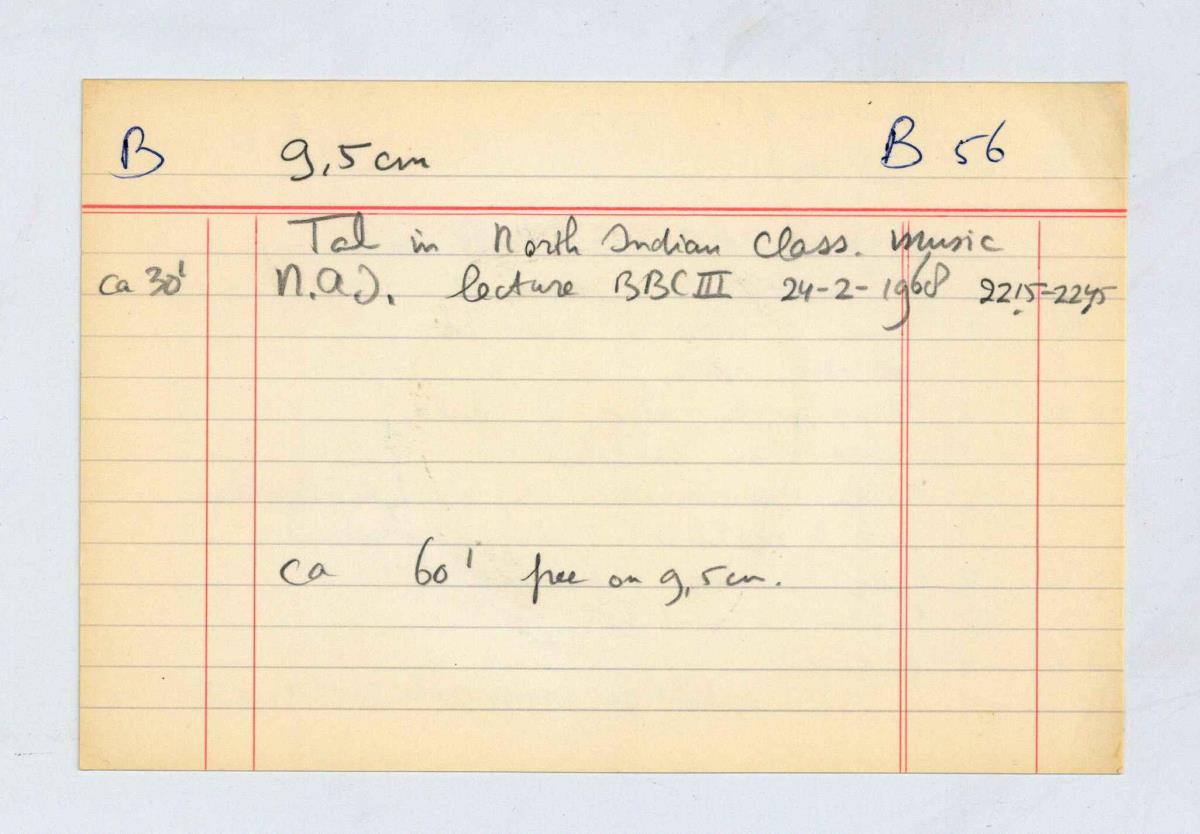 B 9,5 cm B 56
Tal in North Indian Class. Music
ca 30' N.A.J. lecture BBC III 24-2-1968 2215-2245
ca 60' free on 9,5 cm.